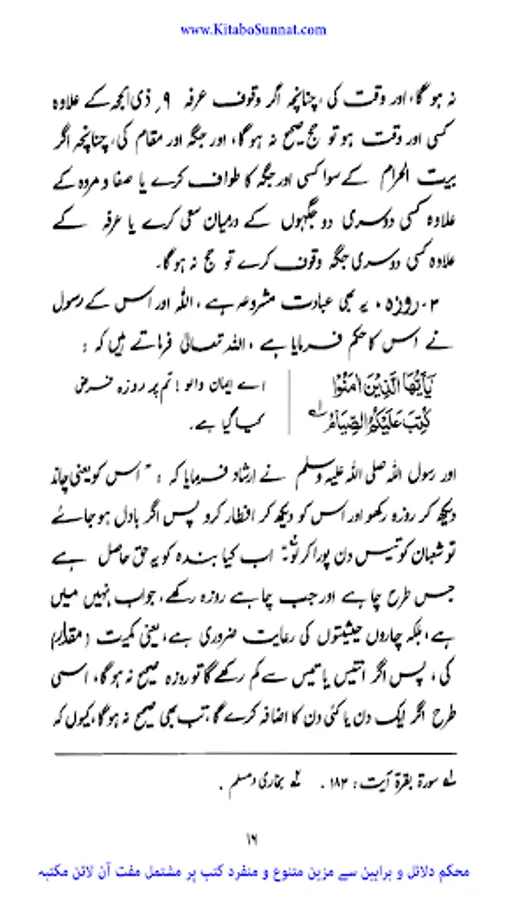 www.KitaboSunnat.com
نہ ہوگا، اور وقت کی، چنانچہ اگر وقوف عرفہ ۹ر ذی الحجہ کے علاوہ
کسی اور وقت ہو تو حج صحیح نہ ہوگا، اور جگہ اور مقام کی، چنانچہ اگر
بیت الحرام کے سوا کسی اور جگہ کا طواف کرے یا صفا و مروہ کے
علاوہ کسی دوسری دو جگہوں کے درمیان سعی کرے یا عرفہ کے
علاوہ کسی دوسری جگہ وقوف کرے تو حج نہ ہوگا۔
۳۔ روزہ، یہ بھی عبادت مشروعہ ہے، اللہ اور اس کے رسول
نے اس کا حکم فرمایا ہے، اللہ تعالیٰ فرماتے ہیں کہ :
يَٰٓأَيُّهَا الَّذِيْنَ اٰمَنُوْا اے ایمان والو! تم پر روزہ فرض
كُتِبَ عَلَيْكُمُ الصِّيَامُ ؂۱ کیا گیا ہے۔
اور رسول اللہ صلی اللہ علیہ وسلم نے ارشاد فرمایا کہ : "اس کو یعنی چاند
دیکھ کر روزہ رکھو اور اس کو دیکھ کر افطار کرو پس اگر بادل ہو جائے
تو شعبان کو تیس دن پورا کر لو" ؂۲ اب کیا بندہ کو یہ حق حاصل ہے
جس طرح چاہے اور جب چاہے روزہ رکھے، جواب نہیں میں
ہے، بلکہ چاروں حیثیتوں کی رعایت ضروری ہے، یعنی کمیت (مقدار)
کی، پس اگر انتیس یا تیس سے کم رکھے گا تو روزہ صحیح نہ ہوگا، اسی
طرح اگر ایک دن یا کئی دن کا اضافہ کرے گا، تب بھی صحیح نہ ہوگا، کیوں کہ
؂۱ سورۃ بقرۃ آیت : ۱۸۳ . ؂۲ بخاری و مسلم .
۱۶
محکم دلائل و براہین سے مزین متنوع و منفرد کتب پر مشتمل مفت آن لائن مکتبہ